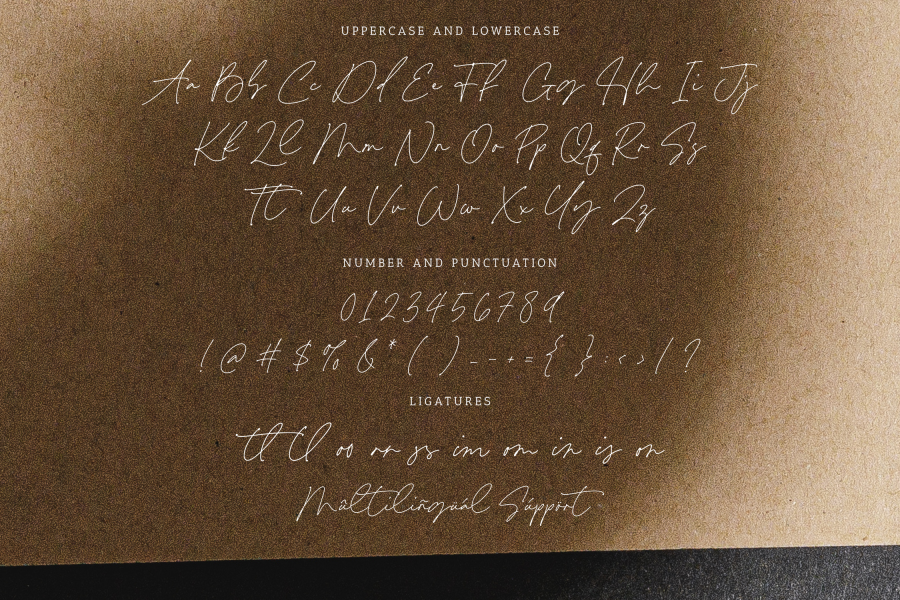 UPPERCASE AND LOWERCASE
Aa Bb Cc Dd Ee Ff Gg Hh Ii Jj
Kk Ll Mm Nn Oo Pp Qq Rr Ss
Tt Uu Vv Ww Xx Yy Zz
NUMBER AND PUNCTUATION
0123456789
! @ # $ % & * ( ) _ - + = { } : < > / ?
LIGATURES
tt ll oo rr ss im om in is on
Múltilingúál Súppört